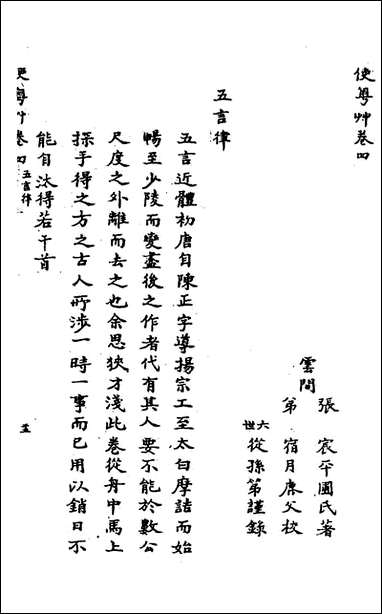 使粵艸卷四
雲間
張宸平圃氏著
弟宿月鹿父校
六世從孫第謹錄
五言律
五言近體初唐自陳正字導揚宗工至太白摩詰而始
暢至少陵而變盡後之作者代有其人要不能於數公
尺度之外離而去之也余思狹才淺此卷從舟中馬上
探手得之方之古人所涉一時一事而已用以銷日不
能自汰得若干首
使粵艸卷四
五言律
一